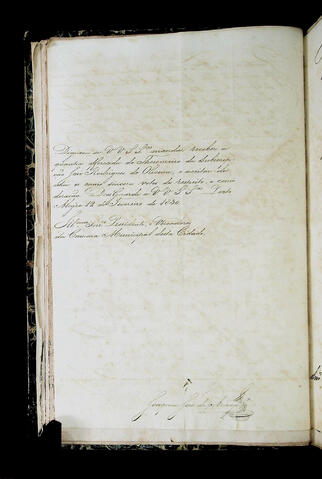 Dignem-se V V. S. Sas mandar receber a
quantia
do Thesoureiro da Subscrip-
ção José Rodrigues de Oliveira, e aceitar
como sincero votos de respeito, e consi
deração. Deos Guarde a V V. S. Sas Porto
Alegre 12 de Fevereiro de 1850.
Illmos Snres Presidente, e Vereadores
da Camara Municipal desta Cidade.
Joaquim José